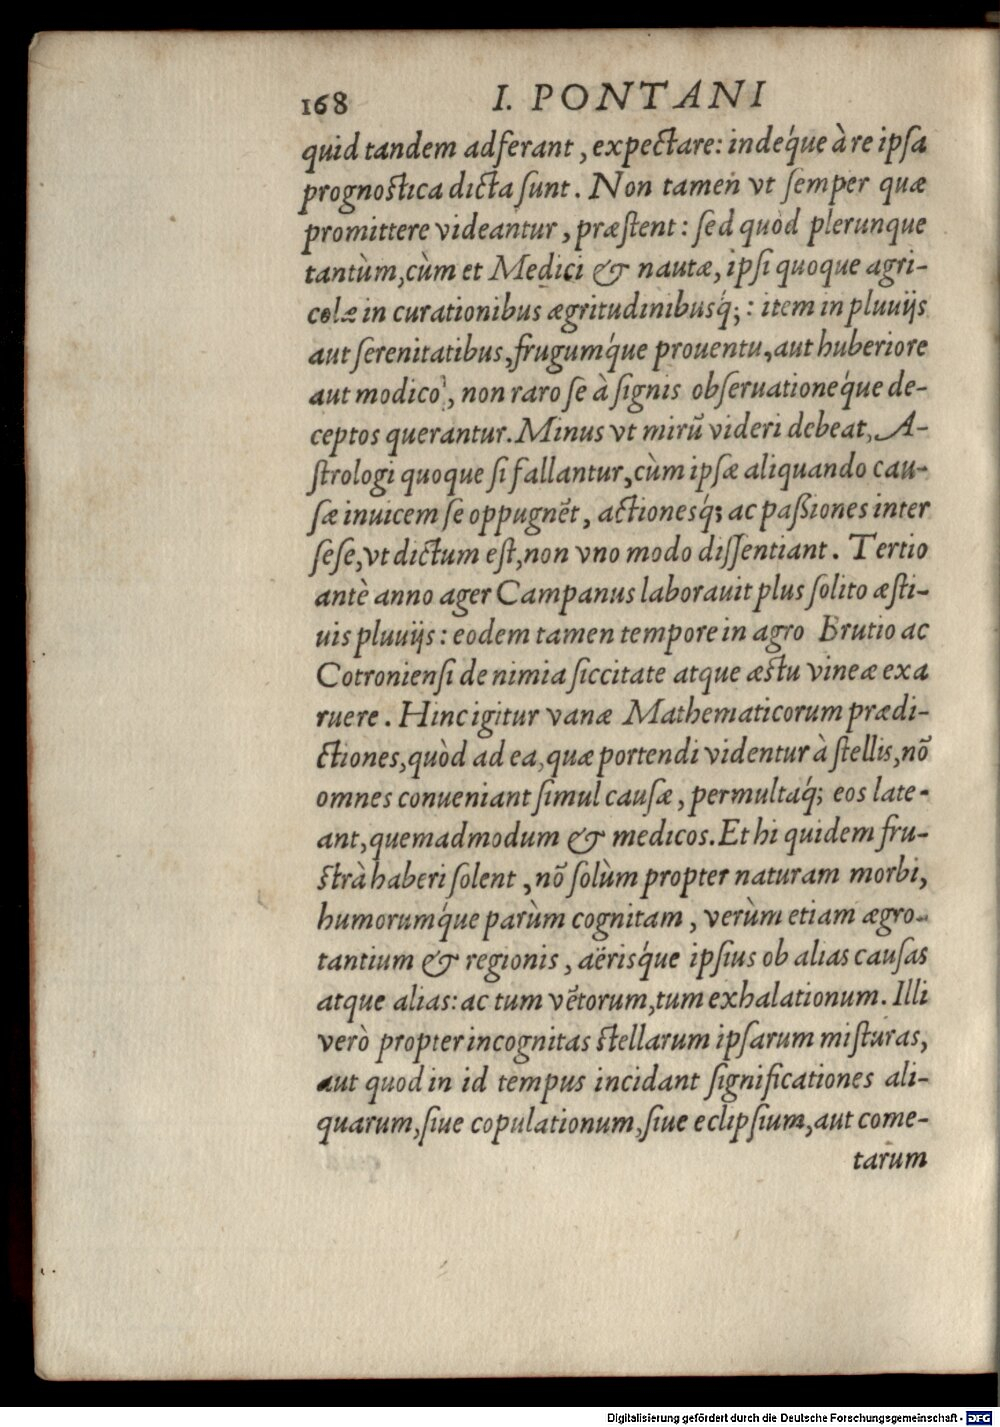 168 I. PONTANI
quid tandem adferant, expectare: indéque à re ipſa
prognoſtica dicta ſunt. Non tamen vt ſemper quæ
promittere videantur, præſtent: ſed quòd plerunque
tantùm, cùm et Medici & nautæ, ipſi quoque agri-
colæ in curationibus ægritudinibusq́;: item in pluuijs
aut ſerenitatibus, frugumq́ue prouentu, aut huberiore
aut modico, non raro ſe à ſignis obſeruationeq́ue de-
ceptos querantur. Minus vt mirũ videri debeat, A-
ſtrologi quoque ſi fallantur, cùm ipſæ aliquando cau-
ſæ inuicem ſe oppugnẽt, actionesq́; ac paßiones inter
ſeſe, vt dictum eſt, non vno modo diſſentiant. Tertio
antè anno ager Campanus laborauit plus ſolito æſti-
uis pluuijs: eodem tamen tempore in agro Brutio ac
Cotronienſi de nimia ſiccitate atque æſtu vineæ exa
ruere. Hinc igitur vanæ Mathematicorum prædi-
ctiones, quòd ad ea, quæ portendi videntur à ſtellis, nõ
omnes conueniant ſimul cauſæ, permultaq́; eos late-
ant, quemadmodum & medicos. Et hi quidem fru-
ſtrà haberi ſolent, nõ ſolùm propter naturam morbi,
humorumq́ue parùm cognitam, verùm etiam ægro-
tantium & regionis, aërisq́ue ipſius ob alias cauſas
atque alias: ac tum vẽtorum, tum exhalationum. Illi
verò propter incognitas ſtellarum ipſarum miſturas,
aut quod in id tempus incidant ſignificationes ali-
quarum, ſiue copulationum, ſiue eclipſium, aut come-
tarum
Digitalisierung gefördert durch die Deutsche Forschungsgemeinschaft - DFG